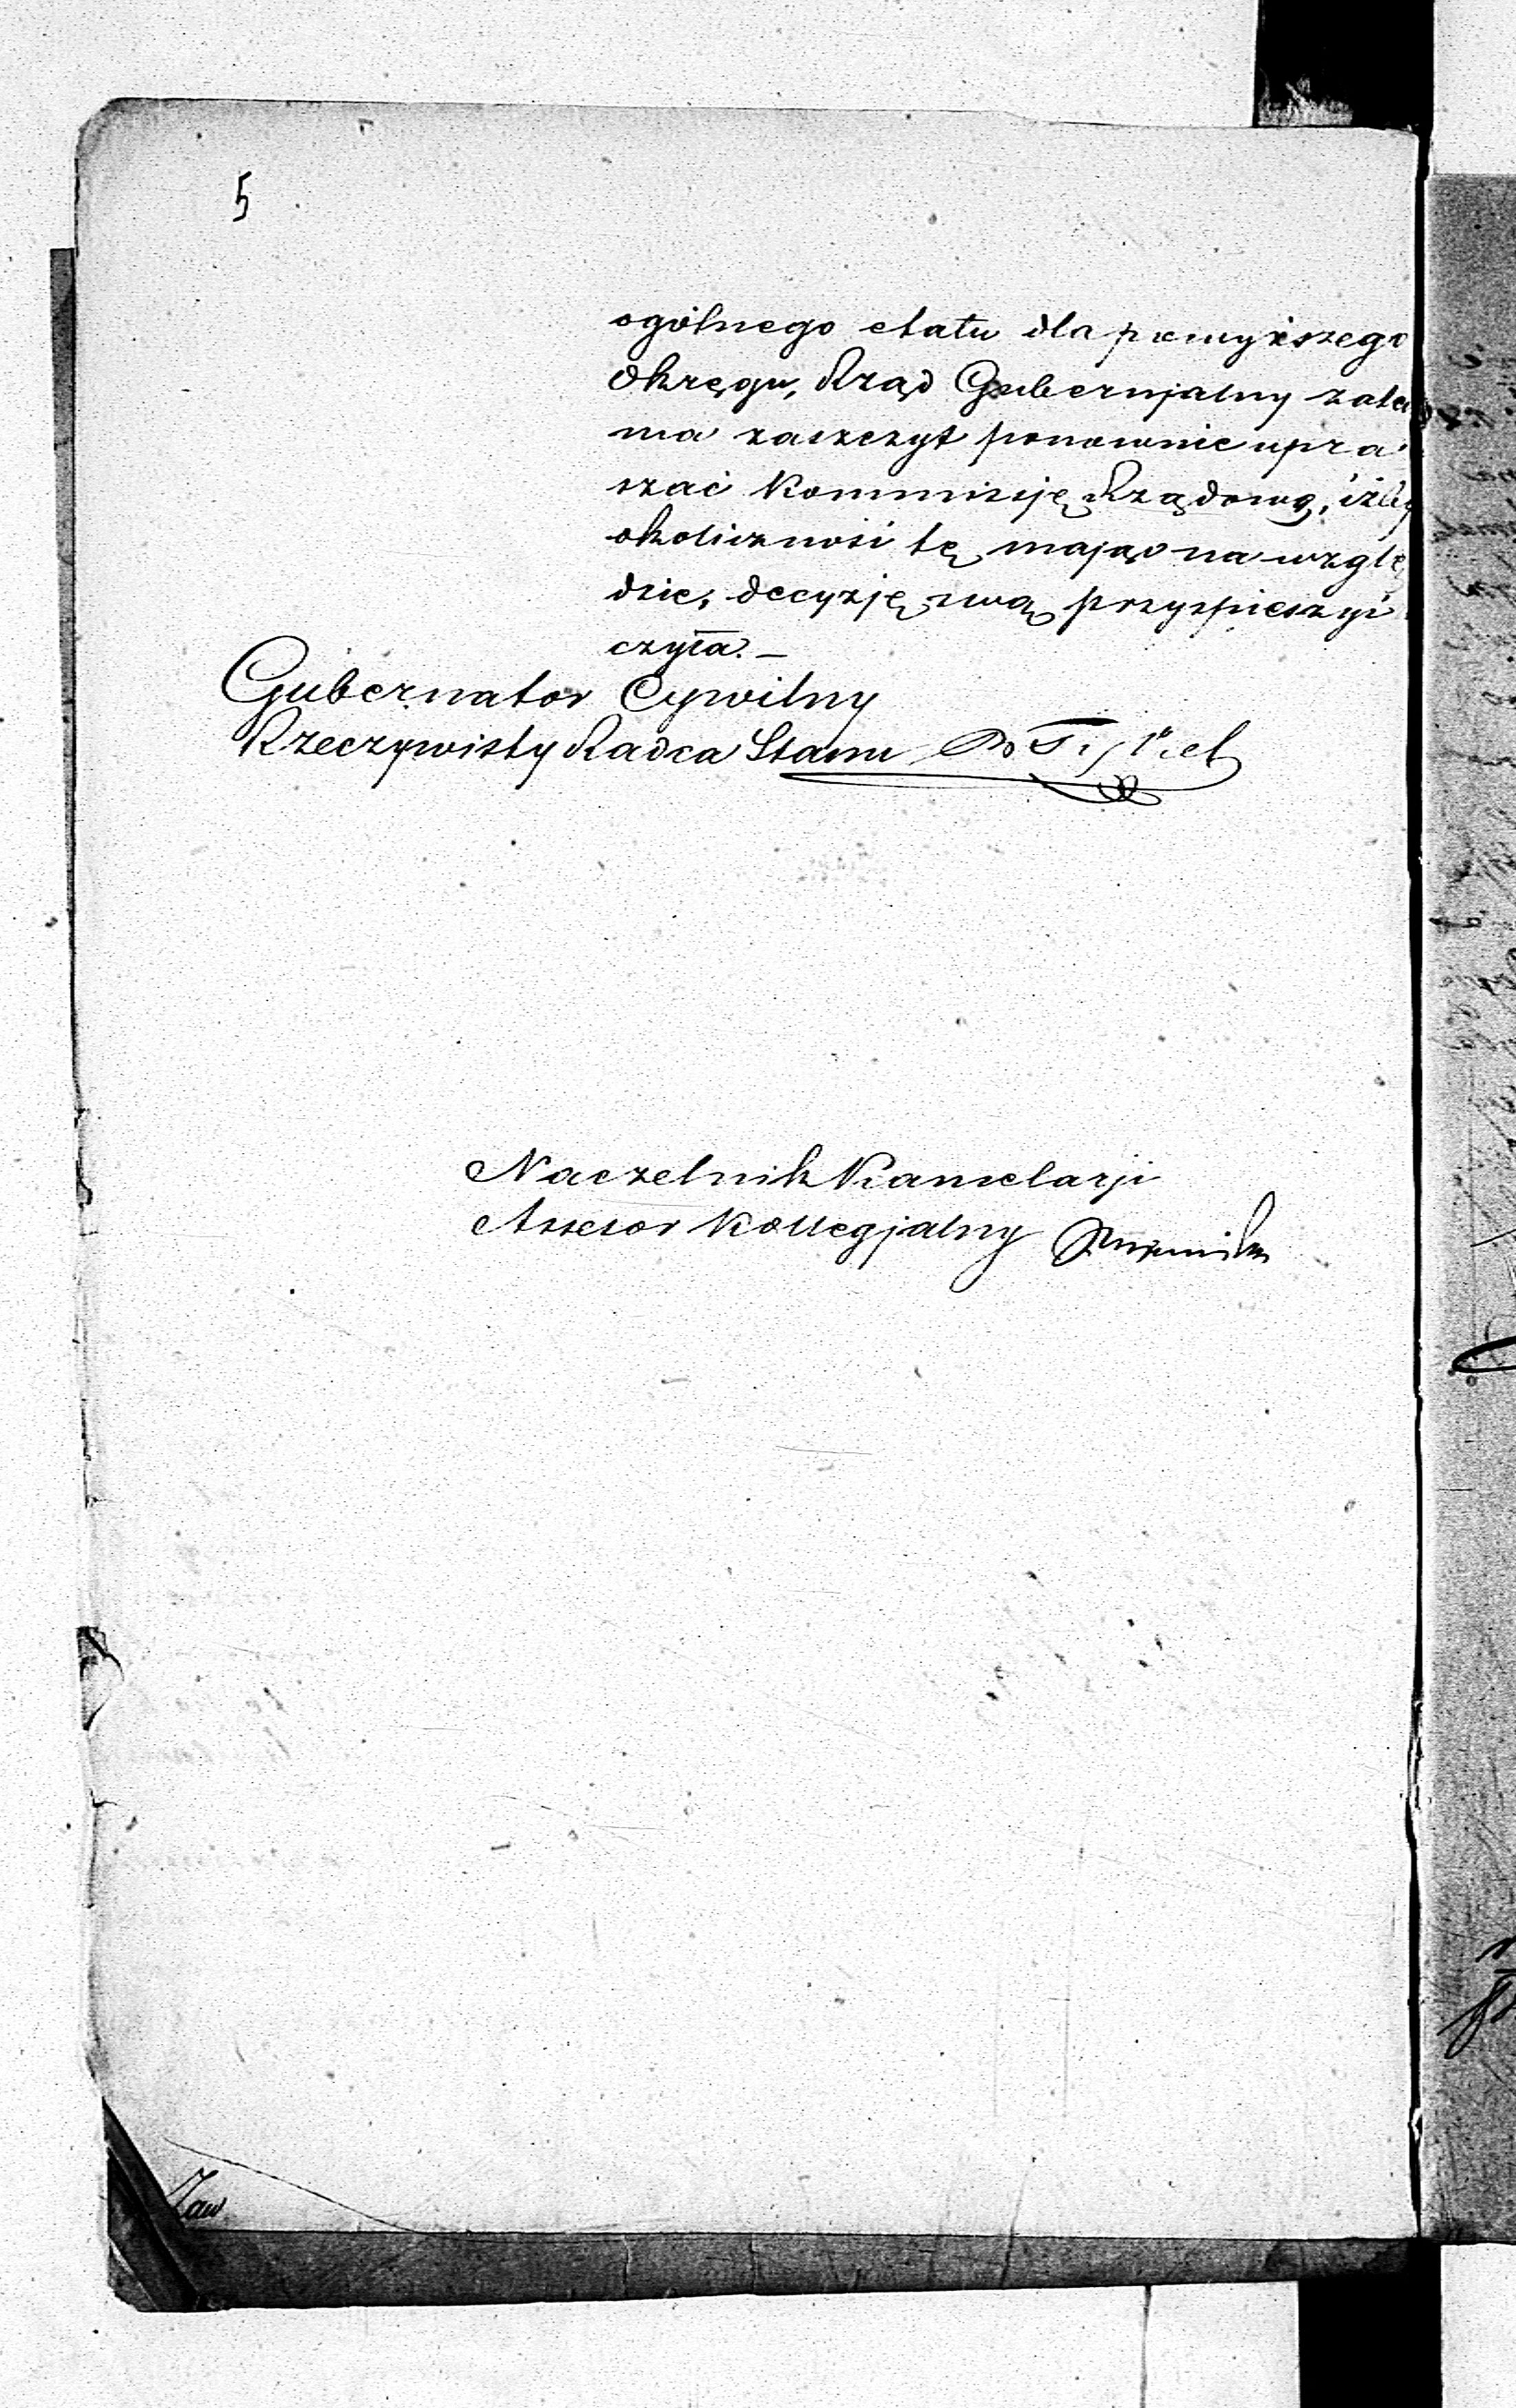 5
ogólnego etatu dla powyższego
Okręgu, Rząd Gubernjalny zatem
ma zaszczyt ponownie upra-
szać Kommissję Rządową, iżby
okoliczność tę mając na wzglę
dzie, decyzję swą przyspieszyć
czyła. –
Gubernator Cywilny
Rzeczywisty Radca Stanu
Naczelnik Kancelarji
Assesor Kollegjalny
Zaw